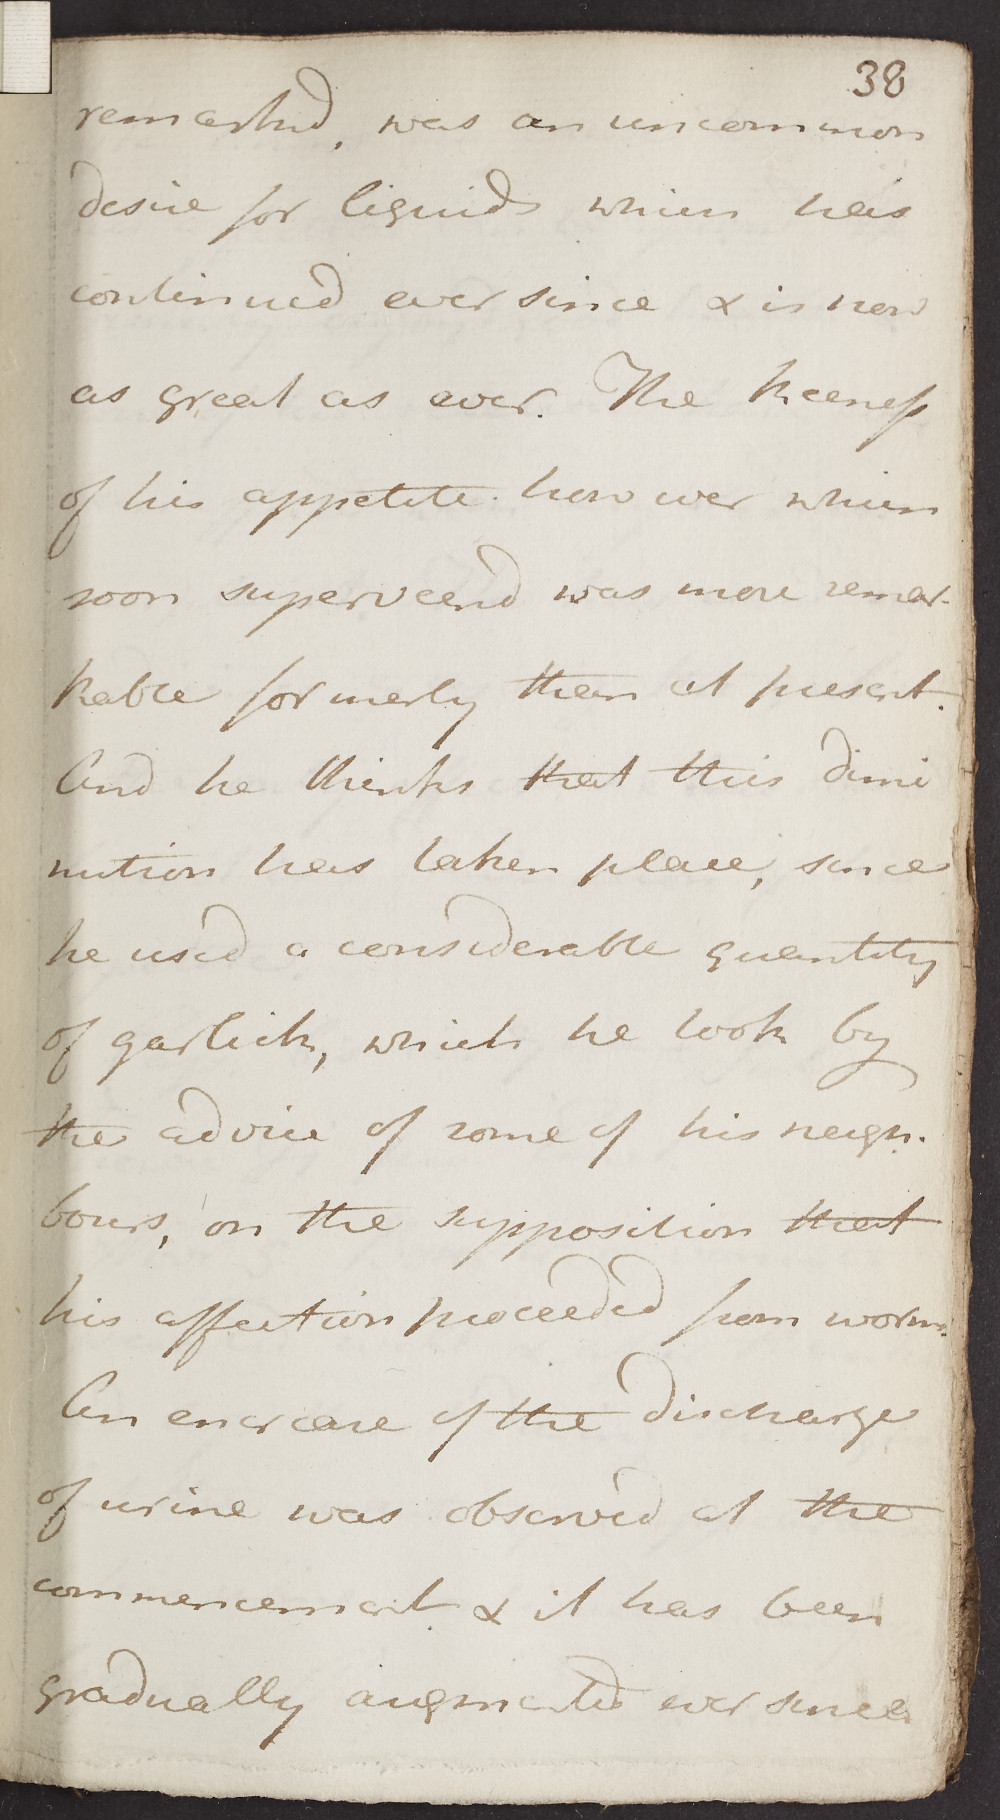 38
remarked, was an uncommon
desire for liquids which has
continued ever since & is now
as great as ever. The keeness
of his appetite however which
soon superveen'd was more remar-
kable formerly than at present.
And he thinks that this dimi
nution has taken place, since
he used a considerable quantity
of garlick, which he took by
the advice of some of his neigh-
bours, on the supposition that
his affection proceeded from worms.
An encrease of the discharge
of urine was observed at the
commencement & it has been
gradually augmented ever since